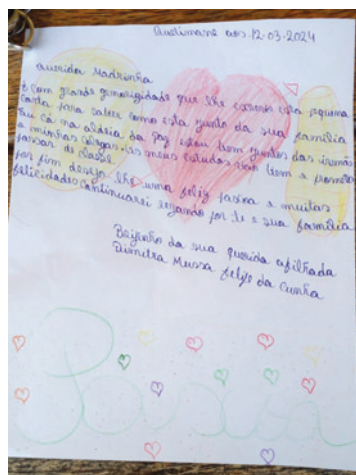 Quelimane aos, 12-03-2024
querida Madrinha
É com grande generosidade que lhe escrevo esta pequena
carta para saber como esta junto da sua família
Eu cá na aldeia da paz estou bem juntos das irmãs
e minhas colegas. Os meus estudos vão bem e prometo
passar de classe.
por fim desejo-lhe uma feliz pascoa e muitas
felicidades continuarei rezando por te e sua família
Beijinho da sua querida afilhada
Dimetra Mussa felipe da Cunha